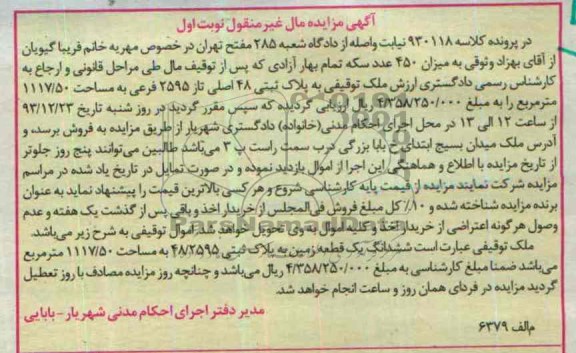 آگهی مزایده مال غیرمنقول نوبت اول
در پرونده کلاسه ۹۳۰۱۱۸ نیابت واصله از دادگاه شعبه ۲۸۵ مفتح تهران در خصوص مهریه خانم فریبا گیویان
از آقای بهزاد وثوقی به میزان ۴۵۰ عدد سکه تمام بهار آزادی که پس از توقیف مال طی مراحل قانونی و ارجاع به
کارشناس رسمی دادگستری ارزش ملک توقیفی به پلاک ثبتی ۴۸ اصلی تاز ۲۵۹۵ فرعی به مساحت ۱۱۱۷/۵۰
مترمربع را به مبلغ ۴/۳۵۸/۲۵۰/۰۰۰ ریال ارزیابی گردیده که سپس مقرر گردید در روز شنبه تاریخ ۹۳/۱۲/۲۳
از ساعت ۱۲ الی ۱۳ در محل اجرای احکام مدنی(خانواده) دادگستری شهریار از طریق مزایده به فروش برسد، و
آدرس ملک میدان بسیج ابتدای خ بابا بزرگی درب سمت راست پ ۳ می‌باشد طالبین می‌توانند پنج روز جلوتر
از تاریخ مزایده با اطلاع و هماهنگی این اجرا از اموال بازدید نموده و در صورت تمایل در تاریخ یاد شده در مراسم
مزایده شرکت نمایند مزایده از قیمت پایه کارشناسی شروع و هر کسی بالاترین قیمت را پیشنهاد نماید به عنوان
برنده مزایده شناخته شده و ۱۰٪ کل مبلغ فروش فی‌المجلس از خریدار اخذ و باقی پس از گذشت یک هفته و عدم
وصول هرگونه اعتراضی از خریدار اخذ و کلیه اموال به وی تحویل خواهد شد. اموال توقیفی به شرح زیر می‌باشد.
ملک توقیفی عبارت است ششدانگ یک قطعه زمین به پلاک ثبتی ۴۸/۲۵۹۵ به مساحت ۱۱۱۷/۵۰ مترمربع
می‌باشد ضمنا مبلغ کارشناسی به مبلغ ۴/۳۵۸/۲۵۰/۰۰۰ ریال می‌باشد و چنانچه روز مزایده مصادف با روز تعطیل
گردید مزایده در فردای همان روز و ساعت انجام خواهد شد.
مدیر دفتر اجرای احکام مدنی شهریار - بابایی
م‌الف ۶۳۷۹